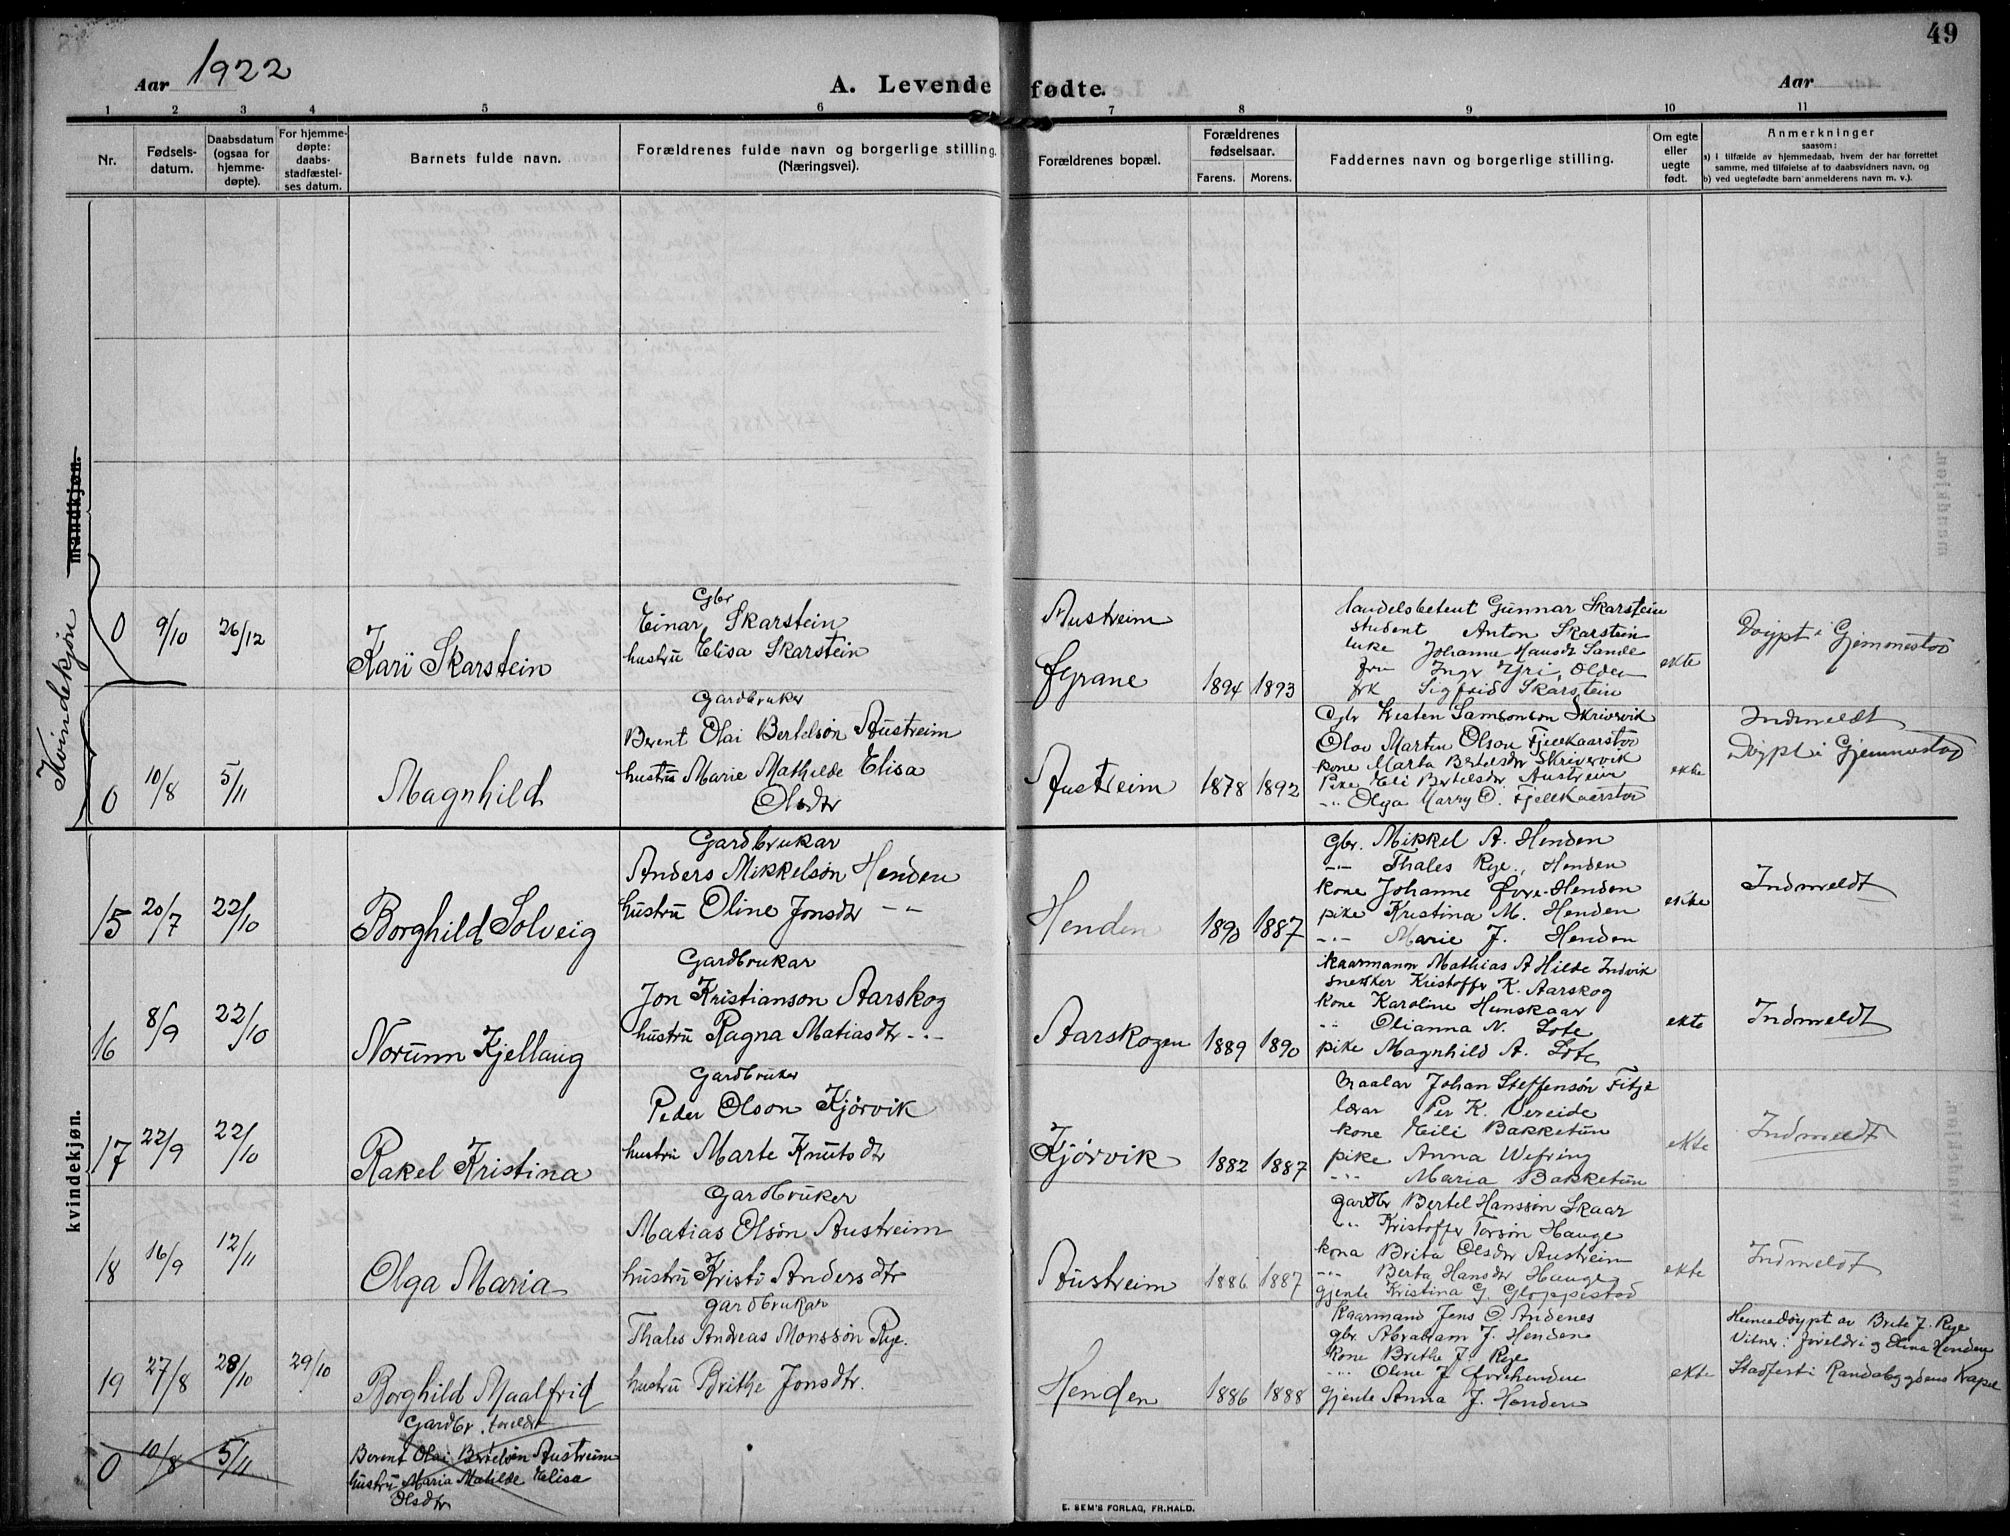 49
Aar 1922
A. Levende fødte.
Aar
1 2 3 4 5 6 7 8 9 10 11
Nr.
Fødsels-
datum.
Daabsdatum
(ogsaa for
hjemme-
døpte).
For hjemme-
døpte:
daabs-
stadfæstel-
ses datum.
Barnets fulde navn.
Forældrenes fulde navn og borgerlige stilling
(Næringsvei).
Forældrenes bopæl.
Forældrenes
fødselsaar.
Farens. Morens.
Faddernes navn og borgerlige stilling.
Om egte
eller
uegte
født.
Anmerkninger
saasom:
a) i tilfælde av hjemmedaab, hvem der har forrettet
samme, med tilføielse af to daabsvidners navn, og
b) ved uegtefødte barn anmelderens navn m. v.).
mandkjøn.
Kvindekjøn
0 9/10 26/12
Kari Skarstein
Gbr
Einar Skarstein
hustru Elisa Skarstein
Austreim
Fyrane
1894 1893
handelsbetent Gunnar Skarstein
student Anton Skarstein
Johanne Sande
fru Olden
frk Sigfrid Skarstein
ekte
Døypt i Gjemmestad
0 10/8 5/11
Magnhild
Gardbruker
Berent Olai Bertelsøn Austreim
hustru Marie Mathilde Elisa
Olsdtr
Austreim
1878 1892
Gbr Kristen Samsonson Skrivervik
Olav Martin Olson Fjellkaarstad
kone Marta Bertelsdr Skrivervik
Pike Eli Bertelsdr Austreim
-"- Olga Marry O. Fjellkaarstad
ekte
Indmeldt
Døypt i Gjemmestad
kvindekjøn.
15 20/7 22/10
Borghild Solveig
Gardbrukar
Anders Mikkelson Henden
hustru Oline Jonsdtr -"-
Henden
1890 1887
Gbr. Mikkel A. Henden
-"- Thales Rye, Henden
kone Johanne Øvre-Henden
pike Kristina M. Henden
-"- Marie J. Henden
ekte
Indmeldt
16 8/9 22/10
Norunn Kjellaug
Gardbrukar
Jon Kristianson Aarskog
hustru Ragna Matiasdtr -"-
Aarskogen
1889 1890
Kaarmann Mathias A Hilde Indvik
Snekker Kristoffer K. Aarskog
kone Karoline Hunskaar
" Olianna N. Lote
pike Magnhild A. Lote
ekte
Indmeldt
17 22/9 22/10
Rakel Kristina
Gardbruker
Peder Olson Kjørvik
hustru Marte Knutsdtr
Kjørvik
1882 1887
Maalar Johan Steffensøn Fitje
lærar Per K. Vereide
kone Eili Bakketun
pike Anna Wefring
-"- Maria Bakketun
ekte
Indmeldt
18 16/9 12/11
Olga Maria
Gardbruker
Matias Olsøn Austreim
hustru Kristi Andersdtr
Austreim
1886 1887
gardbr Bertel Hanssøn Skaar
-"- Kristoffer Torsøn Hauge
kona Brita Olsdtr Austreim
-"- Berta Hansdtr Hauge
gjente Kristina G. Gloppestad
ekte
Indmeldt
19 27/8 28/10 29/10
Borghild Maalfrid
gardbrukar
Thales Andreas Monssøn Rye.
hustru Brithe Jonsdtr.
Henden
1886 1888
Kaarmand Jens O. Andenes
gbr. Abraham J. Henden
kone Brithe J. Rye
-"- Oline J Øvrehenden
gjente Anna J. Henden
ekte
Heimedøypt av Brite J. Rye
Vitner: foreldri og Elina Henden
Stadfest i Randabygdens Kapel
0 10/8 5/11
Gardbr. foreldre
Berent Olai Bertelsøn Austreim
hustru Maria Matilde Elisa
Olsdtr
E. SEM'S FORLAG, FR.HALD.